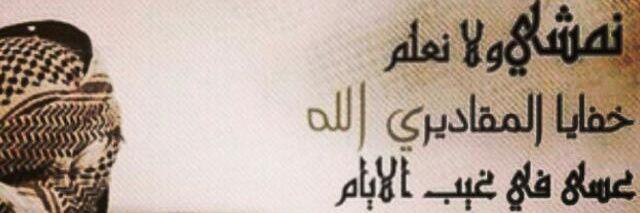 نمشي ولا نعلم
خفايا المقادير ي الله
عسى في غيب الايام